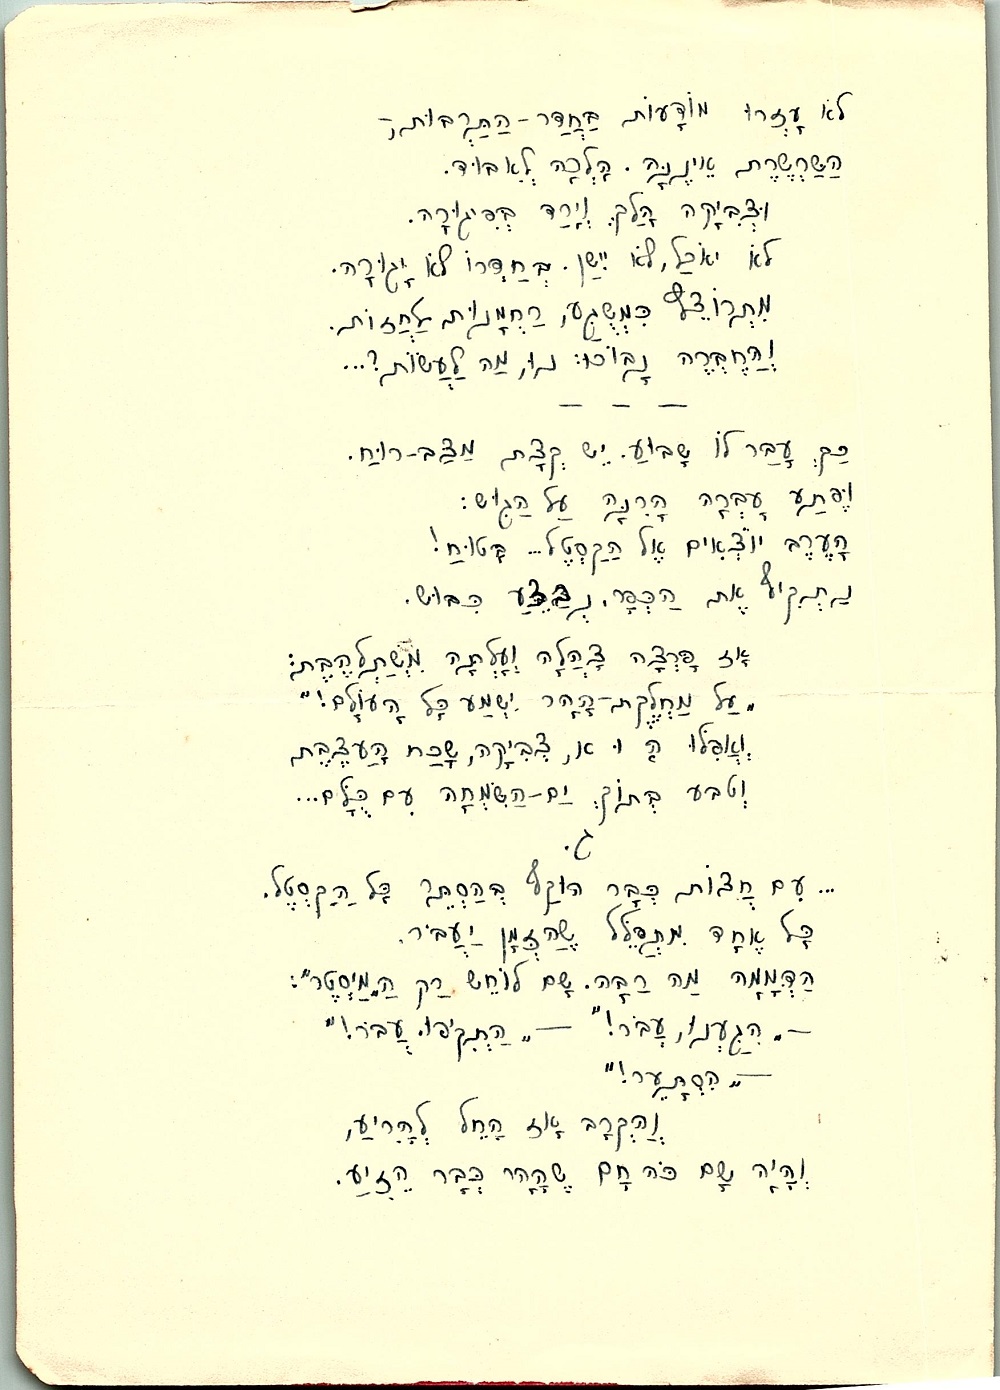 לֹא עָזְרוּ מוֹדָעוֹת בַּחֲדַר-הַתַּרְבּוּת;
הַשַּׁרְשֶׁרֶת אֵינֶנָּה. הָלְכָה לְאִבּוּד.
וּצְבִיקָה הָלַךְ וְיָרַד בְּפִיגוּרָה.
לֹא יֹאכַל, לֹא יִישַׁן. בְּחַדְרוֹ לֹא יָגוּרָה.
מִתְרוֹצֵץ כִּמְשֻׁגָּע, רַחֲמָנוּת לַחֲזוֹת.
וְהַחֶבְרֶה נָבוֹכוּ: נוּ, מַה לַּעֲשׂוֹת?...
— — —
כַּךְ עָבַר לוֹ שָׁבוּעַ. יֵשׁ קְצָת מַצַּב-רוּחַ.
וּפֶתַע עָבְרָה הָרִנָּה עַל הַגּוּשׁ:
הָעֶרֶב יוֹצְאִים אֶל הַקַסְטֶל... בָּטוּחַ!
נַתְקִיף אֶת הַכְּפָר. נְבַצֵּעַ כִּבּוּשׁ.
אָז פָּרְצָה צָהֳלָה וְעָלְתָה מִשְׁתַּלְהֶבֶת:
"עַל מַחְלֶקֶת-הָהָר יִשְׁמַע כָּל הָעוֹלָם!"
וַאֲפִלּוּ ה ו א, צְבִיקָה, שָׁכַח הָעַצֶּבֶת
וְטָבַע בְּתוֹךְ יַם-הַשִּׂמְחָה עִם כֻּלָּם...
ג.
... עִם חֲצוֹת כְּבָר הוּקַף בְּהַסְתֵּר כָּל הַקַסְטֶל.
כָּל אֶחָד מִתְפַּלֵּל שֶׁהַזְּמָן יַעֲבֹר.
הַדְּמָמָה מַה רַבָּה. שָׁם לוֹחֵשׁ רַק הַ"מַיְסְטֶר":
— "הִגַּעְנוּ, עֲבֹר!" — "הַתְקִיפוּ. עֲבֹר!"
— "הִסְתָּעֵר!"
וְהַקְּרָב אָז הָחֵל לְהָרִיעַ,
וְהָיָה שָׁם כֹּה חָם שֶׁהָהָר כְּבָר הִזִּיעַ.